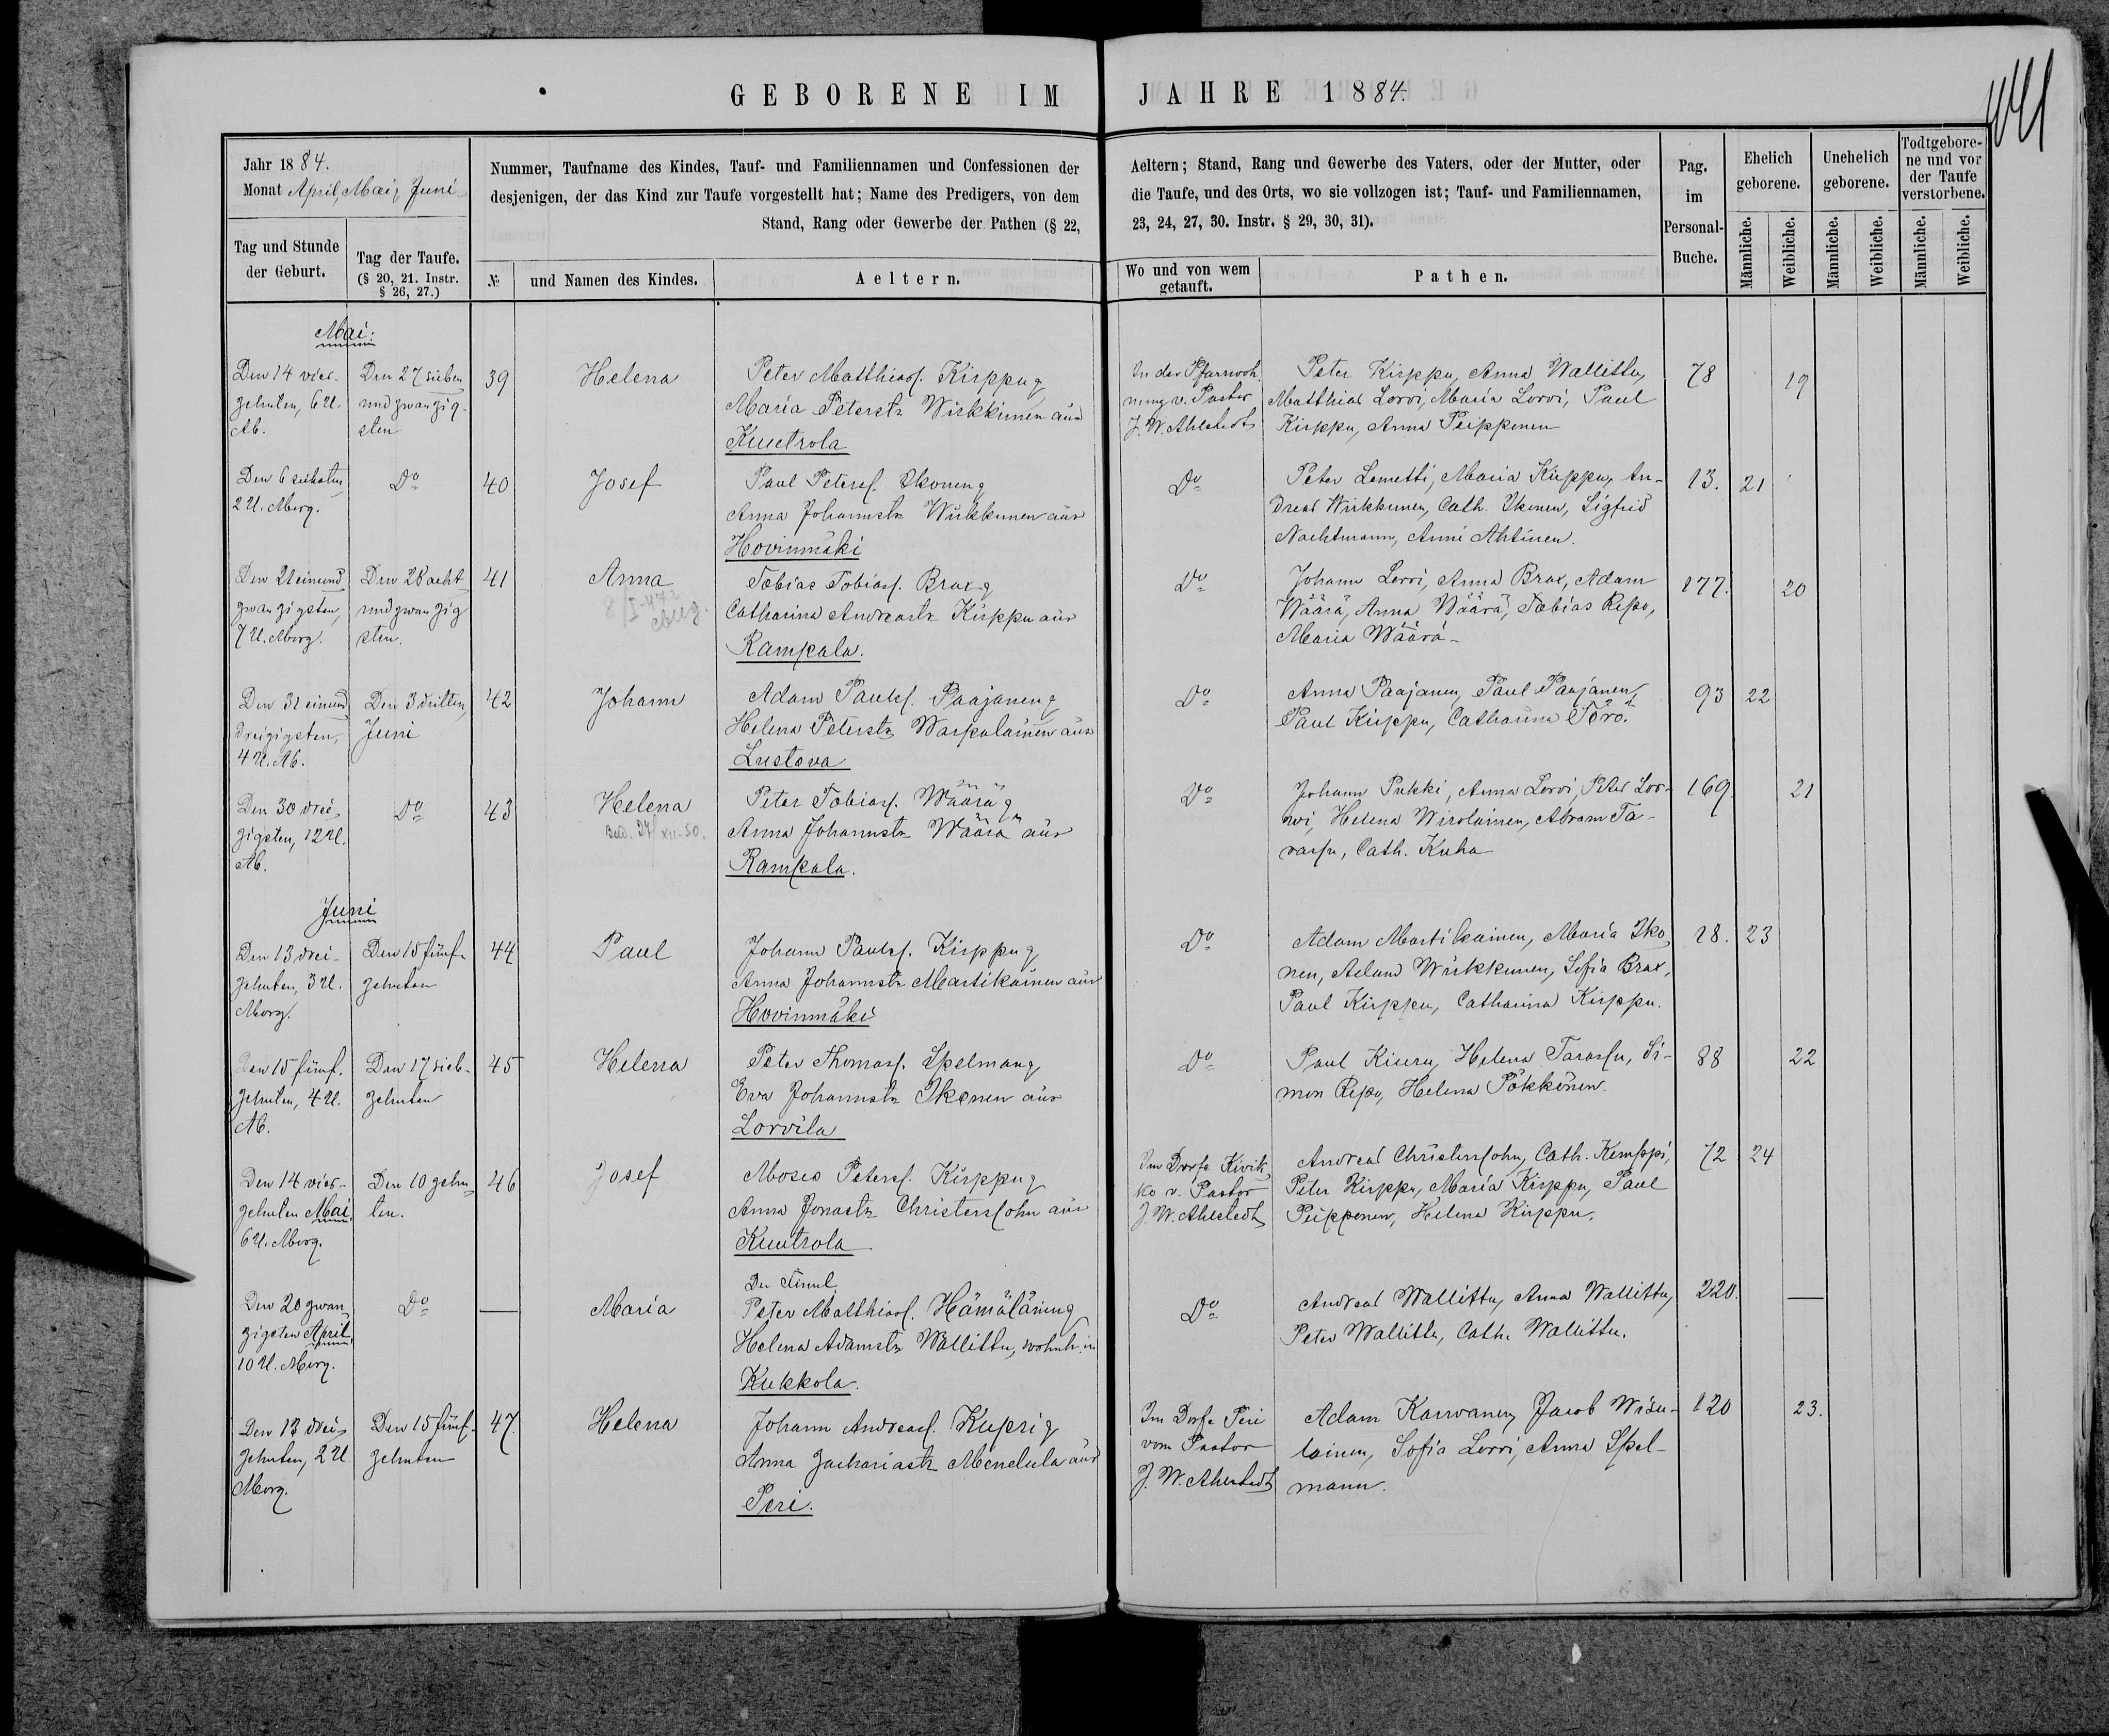 GEBORENE IM JAHRE 1884.
Jahr 1884.
Monat April, Mai, Juni
Nummer, Taufname des Kindes, Tauf- und Familiennamen und Confessionen der
desjenigen, der das Kind zur Taufe vorgestellt hat; Name des Predigers, von dem
Stand, Rang oder Gewerbe der Pathen (§ 22,
Aeltern; Stand, Rang und Gewerbe des Vaters, oder der Mutter, oder
die Taufe, und des Orts, wo sie vollzogen ist; Tauf- und Familiennamen,
23, 24, 27, 30. Instr. § 29, 30, 31).
Tag und Stunde
der Geburt.
Tag der Taufe.
(§ 20, 21. Instr.
§ 26, 27.)
№
und Namen des Kindes.
Aeltern.
Wo und von wem
getauft.
Pathen.
Pag.
im
Personal-
Buche.
Ehelich
geborene.
Unehelich
geborene.
Todtgebore-
ne und vor
der Taufe
verstorbene.
Männliche.
Weibliche.
Männliche.
Weibliche.
Männliche.
Weibliche.
Mai:
Den 14 vier-
zehnten, 6 U.
Ab.
Den 27 sieben
und zwanzig-
sten
39
Helena
Peter Matthiass. Kirppu,
Maria Peterstr Wirkkunen aus
Kuutrola
In der Pfarrwoh-
nung v. Pastor
J. W. Ahlstedt
Peter Kirppu, Anna Wallittu,
Matthias Lorvi, Maria Lorvi, Paul
Kirppu, Anna Peipponen
78
19
Den 6 sechsten
2 U. Morg.
Do
40
Josef
Paul Peterss. Ikonen,
Anna Johannstr Wirkkunen aus
Hovinmäki
Do
Peter Lemetti, Maria Kirppu, An-
dreas Wirkkunen, Cath. Ikonen, Sigfrid
Nachtmann, Anni Ahtinen.
13.
21
Den 21 einund
zwanzigsten,
7 U. Morg.
Den 28 acht
und zwanzig
sten.
41
Anna
Tobias Tobiass. Brax,
Catharina Andreastr Kirppu aus
Rampala.
Do
Johann Lorvi, Anna Brax, Adam
Wäärä, Anna Wäärä, Tobias Repo,
Maria Wäärä
177.
20
Den 31 einund
dreizigsten,
4 U. Ab.
Den 3 dritten,
Juni
42
Johann
Adam Paulss. Paajanen,
Helena Peterstr Warpulainen aus
Lustova
Do
Anna Paajanen, Paul Paajanen,
Paul Kirppu, Catharina Törö.
93
22
Den 30 drei
zigsten, 12 U.
Ab.
Do
43
Helena
Peter Tobiass. Wäärä,
Anna Johannstr Wäärä aus
Rampala.
Do
Johann Pukki, Anna Lorvi, Peter Lor-
wi, Helena Wirolainen, Abram Ta-
rassu, Cath. Kuha
169.
21
Juni
Den 13 drei-
zehnten, 3 U.
Morg.
Den 15 fünf-
zehnten
44
Paul
Johann Paulss. Kirppu,
Anna Johannstr Martikainen aus
Hovinmäki
Do
Adam Martikainen, Maria Iko
nen, Adam Wirkkunen, Sofia Brax,
Paul Kirppu, Catharina Kirppu.
18.
23
Den 15 fünf.
zehnten, 4 U.
Ab.
Den 17 sieb-
zehnten
45
Helena
Peter Thomass. Spelman,
Eva Johannstr Ikonen aus
Lorvila
Do
Paul Kiuru, Helena Tarassu, Si-
mon Repo, Helena Pökkönen.
88
22
Den 14 vier-
zehnten Mai,
6 U. Morg.
Den 10 zehn
ten.
46
Josef
Moses Peterss. Kirppu,
Anna Jonastr Christerssohn aus
Kuutrola
Im Dorfe Kivik
ko v. Pastor
J. W. Ahlstedt
Andreas Christerssohn, Cath. Kemppi,
Peter Kirppu, Maria Kirppu, Paul
Peipponen, Helena Kirppu.
72
24
Den 20 zwan
zigsten April,
10 U. Morg.
Do
—
Maria
Peter Matthiass. Hämäläinen,
Helena Adamstr Wallittu, wohnh. in
Kukkola.
Do
Andreas Wallittu, Anna Wallittu,
Peter Wallittu, Cath. Wallittu.
220.
—
Den 13 drei-
zehnten, 2 U.
Morg.
Den 15 fünf-
zehnten
47.
Helena
Johann Andreass. Kupri,
Anna Zachariastr Mendula aus
Peri.
Im Dorfe Peri
vom Pastor
J. W. Ahlstedt
Adam Karwanen, Jacob
lainen, Sofia Lorvi, Anna Spel-
mann.
120
23.